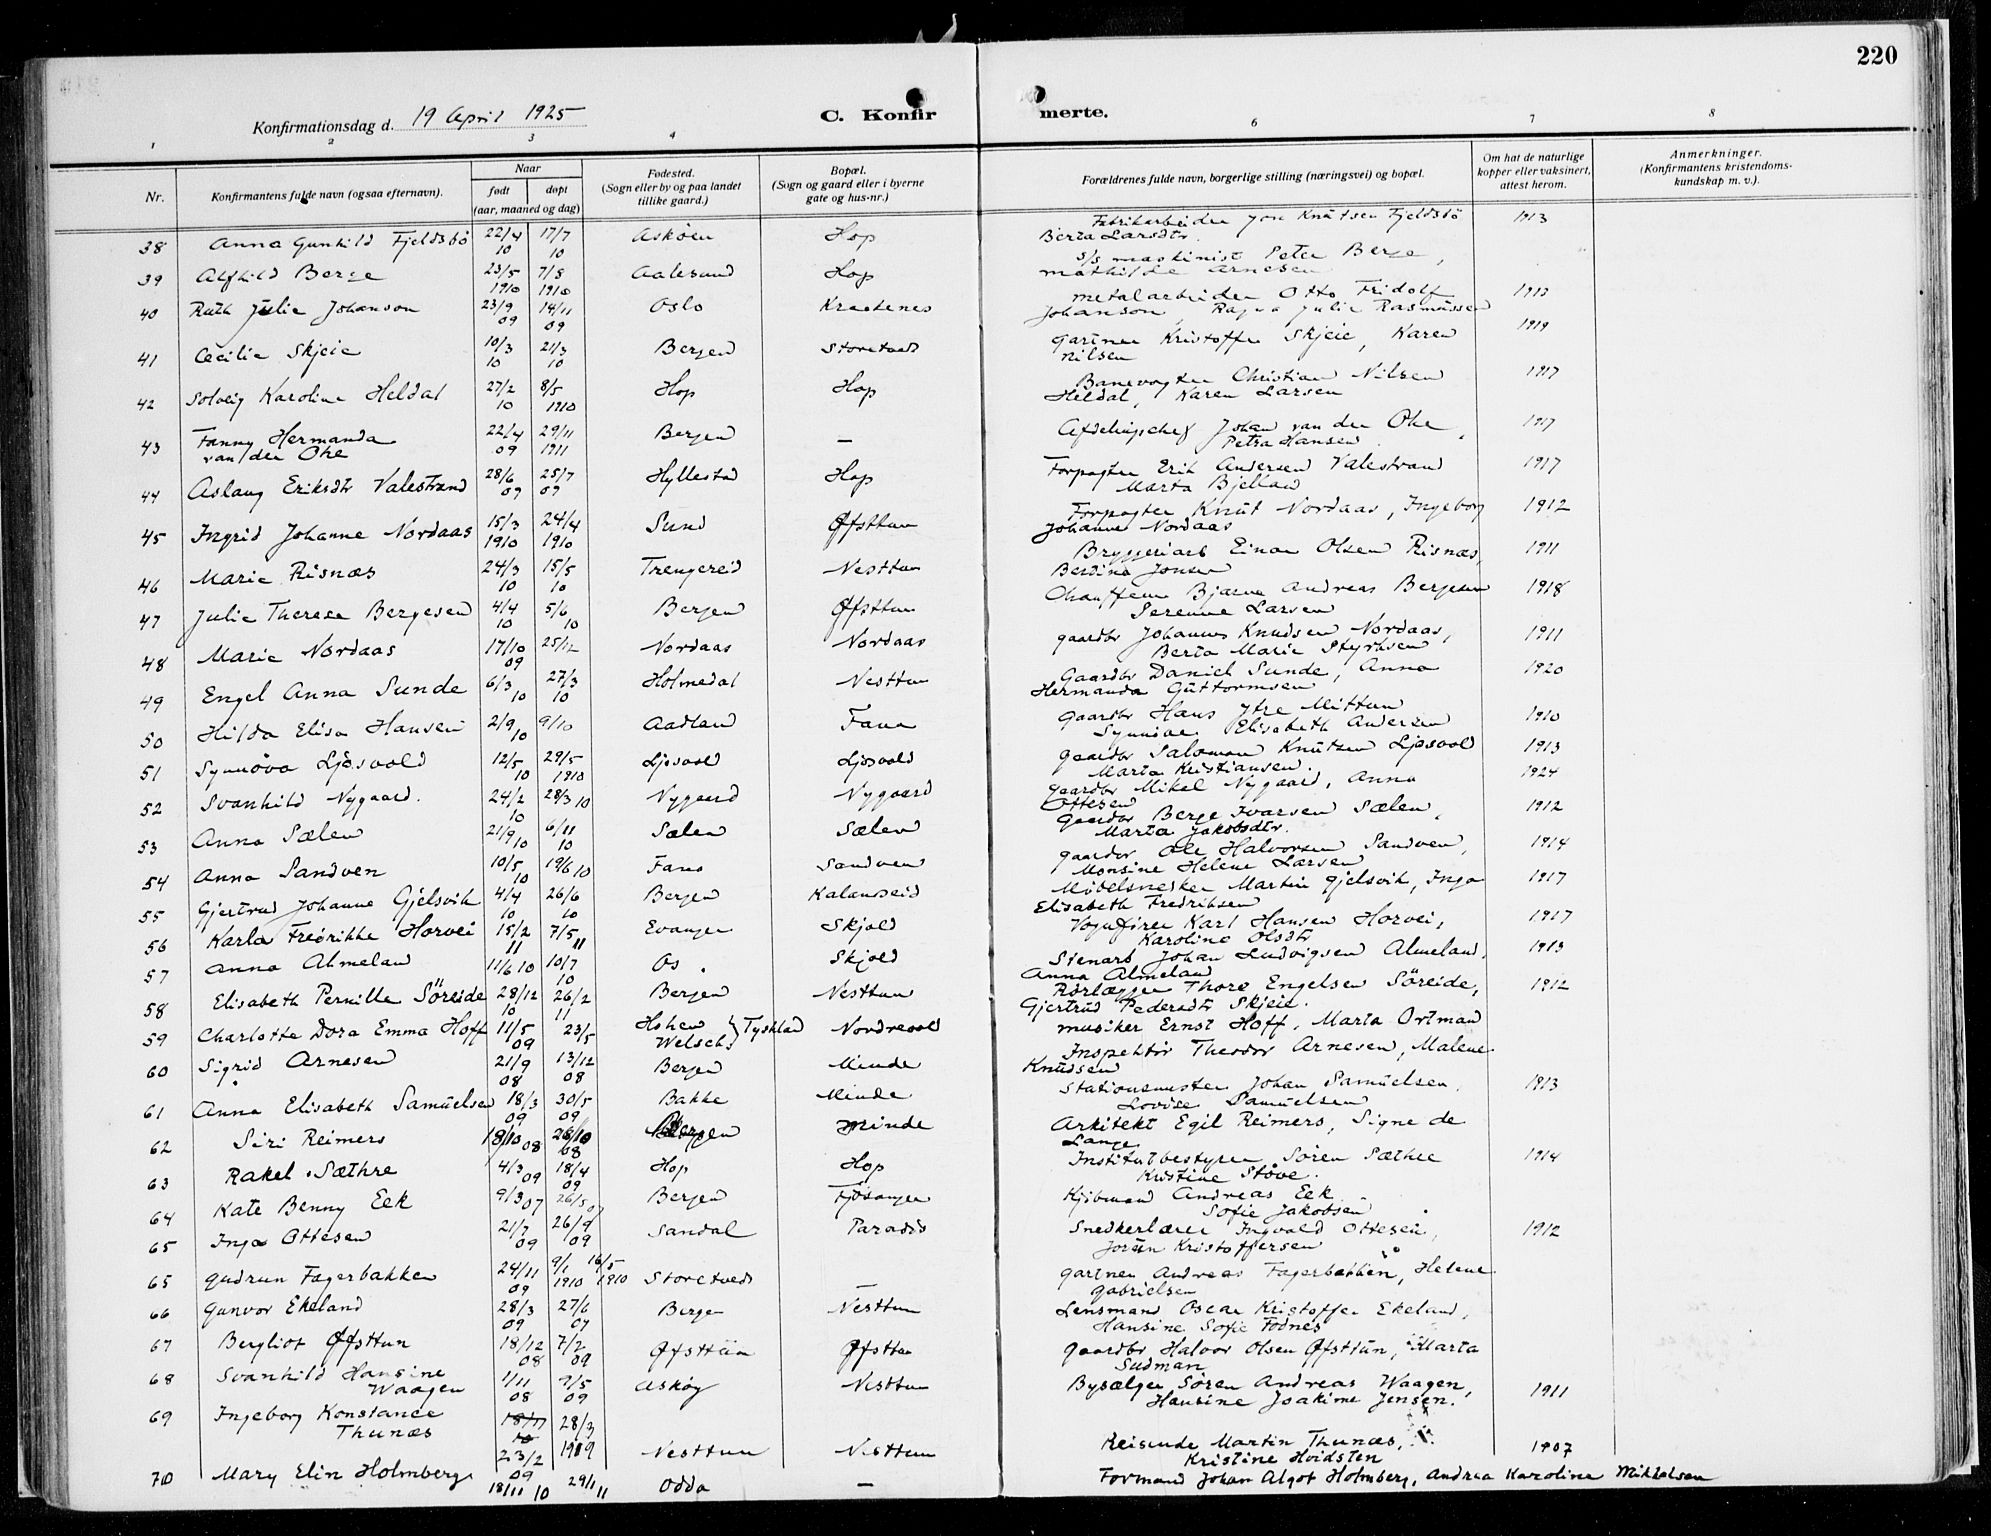 220
Konfirmationsdag d. 19 April 1925
C. Konfirmerte.
1 2 3 4 6 7 8
Nr. | Konfirmantens fulde navn (ogsaa efternavn). | Naar født | døpt (aar, maaned og dag) | Fødested. (Sogn eller by og paa landet tillike gaard.) | Bopæl. (Sogn og gaard eller i byerne gate og hus-nr.) | Forældrenes fulde navn, borgerlige stilling (næringsvei) og bopæl. | Om hat de naturlige kopper eller vaksinert, attest herom. | Anmerkninger. (Konfirmantens kristendomskundskap m. v.).
38 Anna Gunhild Fjeldsbö 22/4 10 17/7 10 Askøen Hop Fabrikarbeider Jon Knutsen Fjeldsbö Berta Larsdtr. 1913
39 Alfhild Berge 23/5 1910 7/8 1910 Aalesund Hop s/s maskinist Peter Berge, Mathilde Arnesen
40 Ruth Julie Johanson 23/9 09 14/11 09 Oslo Kraakenes Metalarbeider Otto Fridolf Johanson, Julie Rasmussen 1913
41 Cecilie Skjeie 10/3 10 21/3 10 Bergen Storetvedt Gartner Kristoffer Skjeie, Karen Nilsen 1919
42 Solveig Karoline Heldal 27/2 10 8/5 1910 Hop Hop Banevogter Christian Nilsen Heldal, Karen Larsen 1917
43 Fanny Hermanda van der Ohe 22/4 09 29/11 1911 Bergen — Afdelingschef Johan van der Ohe, Petra Hansen 1917
44 Aslaug Eriksdtr Valestrand 28/6 09 25/7 09 Hyllestad Hop Forpagter Erik Andersen Valestrand Marta Bjelland 1917
45 Ingrid Johanne Nordaas 15/3 1910 24/4 1910 Sund Øfsttun Forpagter Knut Nordaas, Ingeborg Johanne Nordaas 1912
46 Marie Risnæs 24/3 10 15/5 10 Trengereid Nesttun Bryggeriarb Einar Olsen Risnæs, Berdina Jonsen 1911
47 Julie Therese Bergesen 4/4 10 5/6 10 Bergen Øfsttun Chauffeur Bjarne Andreas Bergesen Serenne Larsen 1918
48 Marie Nordaas 17/10 09 25/12 Nordaas Nordaas gaardbr Johannes Knudsen Nordaas, Berta Marie Styrksen 1911
49 Engel Anna Sunde 6/3 10 27/3 10 Holmedal Nesttun Gaardbr Daniel Sunde, Anna Hermanda Guttormsen 1920
50 Hilda Elisa Hansen 2/9 10 9/10 Aadland Fana Gaardbr Hans Ytre Mittun Synnöve Elisabeth Andersen 1910
51 Synnöva Ljosvold 12/5 10 29/5 1910 Ljosvold Ljosvold gaardbr Salomon Knutsen Ljosvold Marta Kristiansen. 1913
52 Svanhild Nygaard. 24/2 10 28/3 10 Nygaard Nygaard gaardbr Mikel Nygaard, Anna Ottesen 1924
53 Anna Sælen 21/9 10 6/11 10 Sælen Sælen Gaardbr Berge Ivarsen Sælen, Marta Jakobsdtr. 1912
54 Anna Sandven 10/5 10 19/6 10 Fana Sandven gaardbr Ole Halvorsen Sandven, Monsine Helene Larsen 1914
55 Gjertrud Johanne Gjelsvik 4/4 10 26/6 10 Bergen Kalandseid Möbelsnekker Martin Gjelsvik, Inga Elisabeth Fredriksen 1917
56 Karla Fredrikke Horvei 15/2 11 7/5 11 Evanger Skjold Vognfører Karl Hansen Horvei, Karoline Olsdtr 1917
57 Anna Almeland 11/6 10 10/7 10 Os. Skjold Stenarb Johan Ludvigsen Almeland, Anna Almeland 1913
58 Elisabeth Pernille Söreide 28/12 10 26/2 11 Bergen Nesttun Rörlægger Thore Engelsen Söreide, Gjertrud Pedersdtr Skjeie. 1912
59 Charlotte Dora Emma Hoff 11/5 09 23/5 Hohen Welsch } Tyskland Nordrevold musiker Ernst Hoff, Marta Ortman
60 Sigrid Arnesen 21/9 08 13/12 08 Bergen Minde Inspektör Theodor Arnesen, Malene Knudsen
61 Anna Elisabeth Samuelsen 18/3 09 30/5 09 Bakke Minde Stationsmester Johan Samuelsen, Lovise Samuelsen 1913
62 Siri Reimers 18/10 08 28/10 08 Bergen Minde Arkitekt Egil Reimers, Signe de Lange
63 Rakel Sæthre 4/3 09 18/4 09 Hop Hop Institutbestyrer Sören Sæthre Kristine Stöve. 1914
64 Kate Benny Eek 9/3 07 26/5 07 Bergen Fjösanger Kjöbmand Andreas Eek Sofie Jakobsen
65 Inga Ottesen 21/7 09 26/9 09 Sandal Paradis Snedkerlærer Ingvald Ottesen, Jorun Kristoffersen 1912
65 Gudrun Fagerbakken 24/11 09 9/1 1910 16/5 1910 Storetvedt — Gartner Andreas Fagerbakken, Helene Gabrielsen
66 Gunvor Ekeland 28/3 09 27/6 07 Bergen Nesttun Lensmand Oscar Kristoffer Ekeland, Hansine Sofie Fodnes
67 Bergliot Øfsttun 18/12 08 7/2 09 Øfsttun Øfsttun Gaardbr Halvor Olsen Øfsttun, Marta Sudman
68 Svanhild Hansine Waagen 1/11 08 9/5 09 Askøy Nesttun Bysælger Sören Andreas Waagen, Hansine Joakime Jensen. 1911
69 Ingeborg Konstance Thunæs 18/11 10 23/2 09 28/3 1909 Nesttun Nesttun Reisende Martin Thunæs, Kristine Hvidsten 1907
70 Mary Elin Holmberg 18/11 10 29/11 11 Odda — Formand Johan Algot Holmberg, Andrea Karoline Mikkelsen